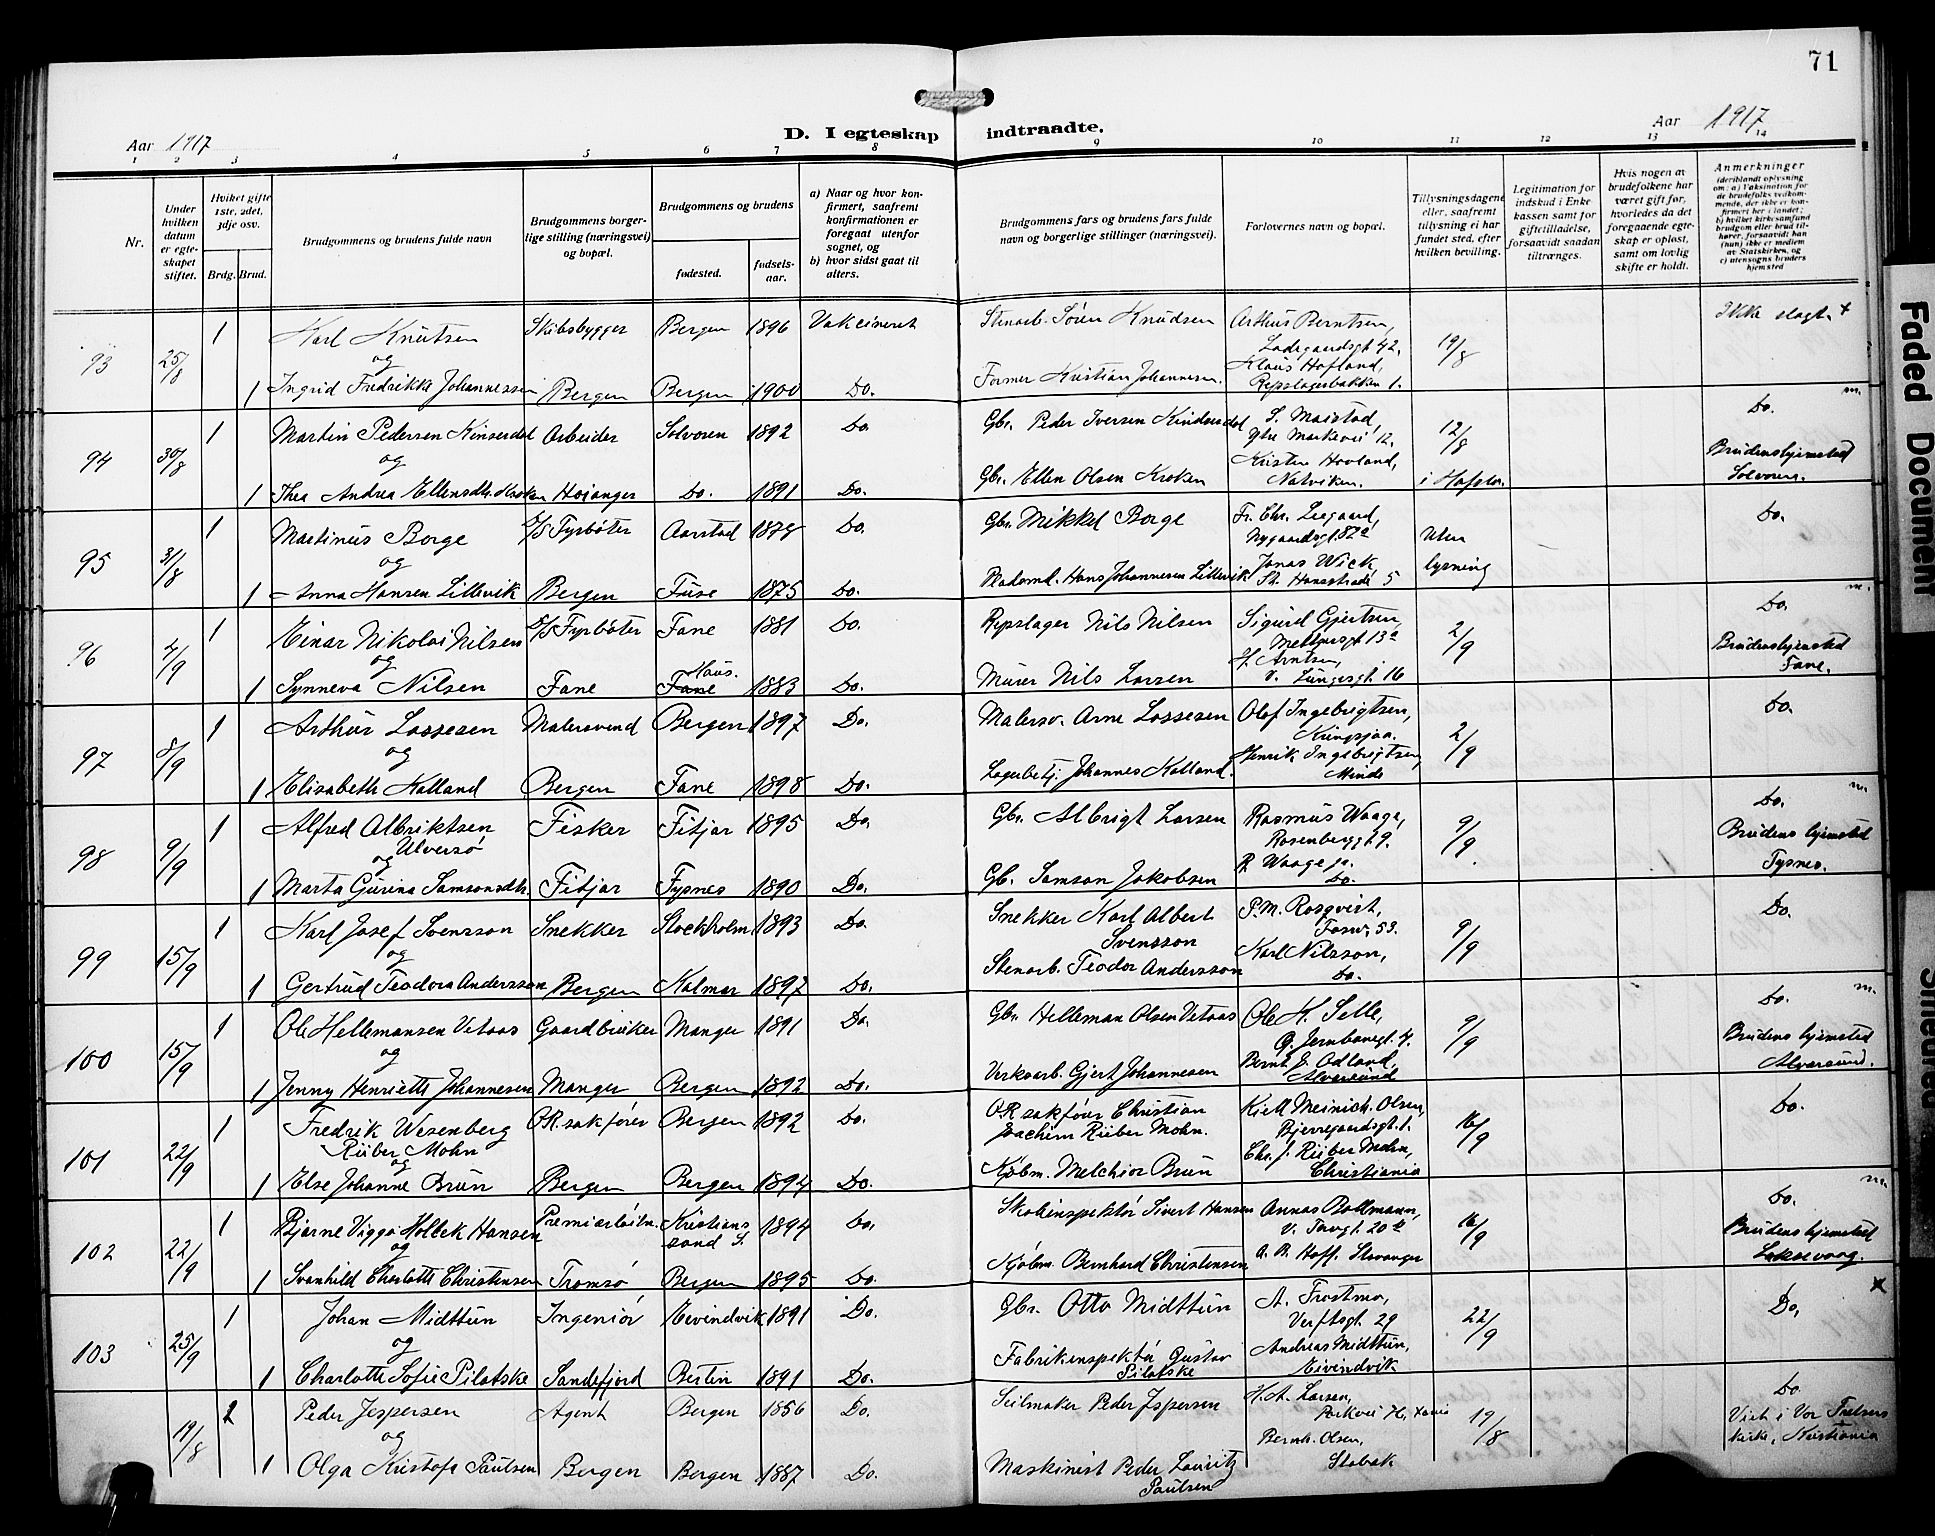 71
Aar 1917
D. I egteskap indtraadte.
Aar 1917
1 2 3 4 5 6 7 8 9 10 11 12 13 14
Nr.
Under hvilken datum er egteskapet stiftet.
Hvilket gifte 1ste, 2det, 3dje osv.
Brdg. Brud.
Brudgommens og brudens fulde navn
Brudgommens borgerlige stilling (næringsvei) og bopæl.
Brudgommens og brudens
fødested. fødselsaar.
a) Naar og hvor konfirmert, saafremt konfirmationen er foregaat utenfor sognet, og
b) hvor sidst gaat til alters.
Brudgommens fars og brudens fars fulde navn og borgerlige stillinger (næringsvei).
Forlovernes navn og bopæl.
Tillysningsdagene eller, saafremt tillysning ei har fundet sted, efter hvilken bevilling.
Legitimation for indskud i Enkekassen samt for giftetilladelse, forsaavidt saadan tiltrænges.
Hvis nogen av brudefolkene har været gift før, hvorledes da det foregaaende egteskap er opløst, samt om lovlig skifte er holdt.
Anmerkninger
(deriblandt oplysning om: a) Vaksination for de brudefolks vedkommende, der ikke er konfirmert her i landet; b) hvilket kirkesamfund brudgom eller brud tilhører, forsaavidt han (hun) ikke er medlem av Statskirken, og c) utensogns bruders hjemsted
93 25/8 1 Karl Knutsen Skibsbygger Bergen 1896 Vakcineret Stenarb. Søren Knudsen Arthur Berntsen, Ladegaardsgt 42, 19/8 Ikke slegt. +
og Klaus Hofland,
1 Ingrid Fredrikke Johannessen Bergen Bergen 1900 Do. Former Kristian Johannesen. Repslagerbakken 1.
94 30/8 1 Martin Pedersen Kinserdal Arbeider Solvorn 1892 Do. Gbr. Peder Iversen Kindserdal S. Maistad, Ytre Markevei 12. 12/8 Do. m.
og Kristen Hovland, Brudens hjemsted
1 Thea Andrea Ellensdtr. Kroken Høianger Do. 1891 Do. Gbr. Ellen Olsen Kroken Natviken. i Hafslo. Solvorn.
95 31/8 1 Martinus Borge D/S Fyrbøter Aarstad 1878 Do. Gbr. Mikkel Borge Fr. Chr. Leegaard, Nygaardsgt. 82a Uten Do.
og Jonas Wick,
1 Anna Hansen Lillevik Bergen Fuse 1875 Do. Hans Johannesen Lillevik St. Hansstredet 5 lysning
96 4/9 1 Einar Nikolai Nilsen D/S Fyrbøter Fane 1881 Do. Repslager Nils Nilsen Sigurd Gjertsen, Meltzersgt 13a 2/9 Do. m.
og Haus. H. Arntsen, Brudens hjemsted
1 Synneva Nilsen Fane Fane 1883 Do. Murer Nils Larsen V. Lungegt. 16 Fane.
97 8/9 1 Arthur Lassesen Malersvend Bergen 1897 Do. Malersv. Arne Lassesen Olaf Ingebrigtsen, Kringsjaa. 2/9 Do.
og Henrik Ingebrigtsen,
1 Elisabeth Kalland Bergen Fane 1898 Do. Lagerbetj. Johannes Kalland. Minde
98 9/9 1 Alfred Albriktsen Ulversø Fisker Fitjar 1895 Do. Gbr. Albrigt Larsen Rasmus Waage, Rosenberggt 9. 9/9 Do. m.
og R. Waage jr. Brudens hjemsted
1 Marta Gurina Samsonsdtr. Fitjar Tysnes 1890 Do. Gb. Samson Jakobsen Do. Tysnes.
99 15/9 1 Karl Josef Svensson Snekker Stockholm 1893 Do. Snekker Karl Albert Svensson P. M. Rosqvist, Fosw. 53. 9/9 Do.
og Karl Nilsson,
1 Gertrud Teodora Andersson Bergen Kalmar 1897 Do. Stenarb. Teodor Andersson Do.
100 15/9 1 Ole Hellemansen Vetaas Gaardbruker Manger 1891 Do. Gbr. Helleman Olsen Vetaas Ole H. Selle, G. Jernbanegt. 4. 9/9 Do. m.
og Bernt G. Odland, Brudens hjemsted
1 Jenny Henriette Johannesen Manger Bergen 1892 Do. Verksarb. Gjert Johannesen Alversund Alversund.
101 22/9 1 Fredrik Wesenberg Rüber Mohn O.R. sakfører Bergen 1892 Do. O.R sakfører Christian Joachim Rüber Mohn. Kjell Meinich. Olsen, Bjerregaardsgt. 1. 16/9 Do.
og Chr. J. Rüber Mohn,
1 Else Johanne Brun Bergen Bergen 1894 Do. Kjøbm. Melchior Brun Christiania
102 22/9 1 Bjarne Viggo Holbek Hansen Premierløitn. Kristianssand S. 1894 Do. Skoleinspektør Sivert Hansen Annas Bollmann, V. Torvgt. 20b 16/9 Do. m.
og A. B. Hoff. Stavanger Brudens hjemsted
1 Svanhild Charlotte Christensen Tromsø Bergen 1895 Do. Kjøbm. Bernhard Christensen Laksevaag.
103 25/9 1 Johan Midttun Ingeniør Eivindvik 1891 Do. Gbr. Otto Midttun A. Frostmo, Verftsgt. 29 22/9 Do. x
og Andreas Midttun,
1 Charlotte Sofie Pilatske Sandefjord Berlin 1891 Do. Fabrikinspektør Gustav Pilatske Eivindvik
19/8 2 Peder Jespersen Agent Bergen 1856 Do. Seilmaker Peder Jespersen H. A. Larsen, Parkvei 19/8 Do
og Bernh. Olsen, Viet i Vor Frelsers kirke, Kristiania
1 Olga Kristofa Paulsen Bergen Bergen 1887 Do. Maskinist Peder Lauritz Paulsen Stabæk
Faded Document
Smeared